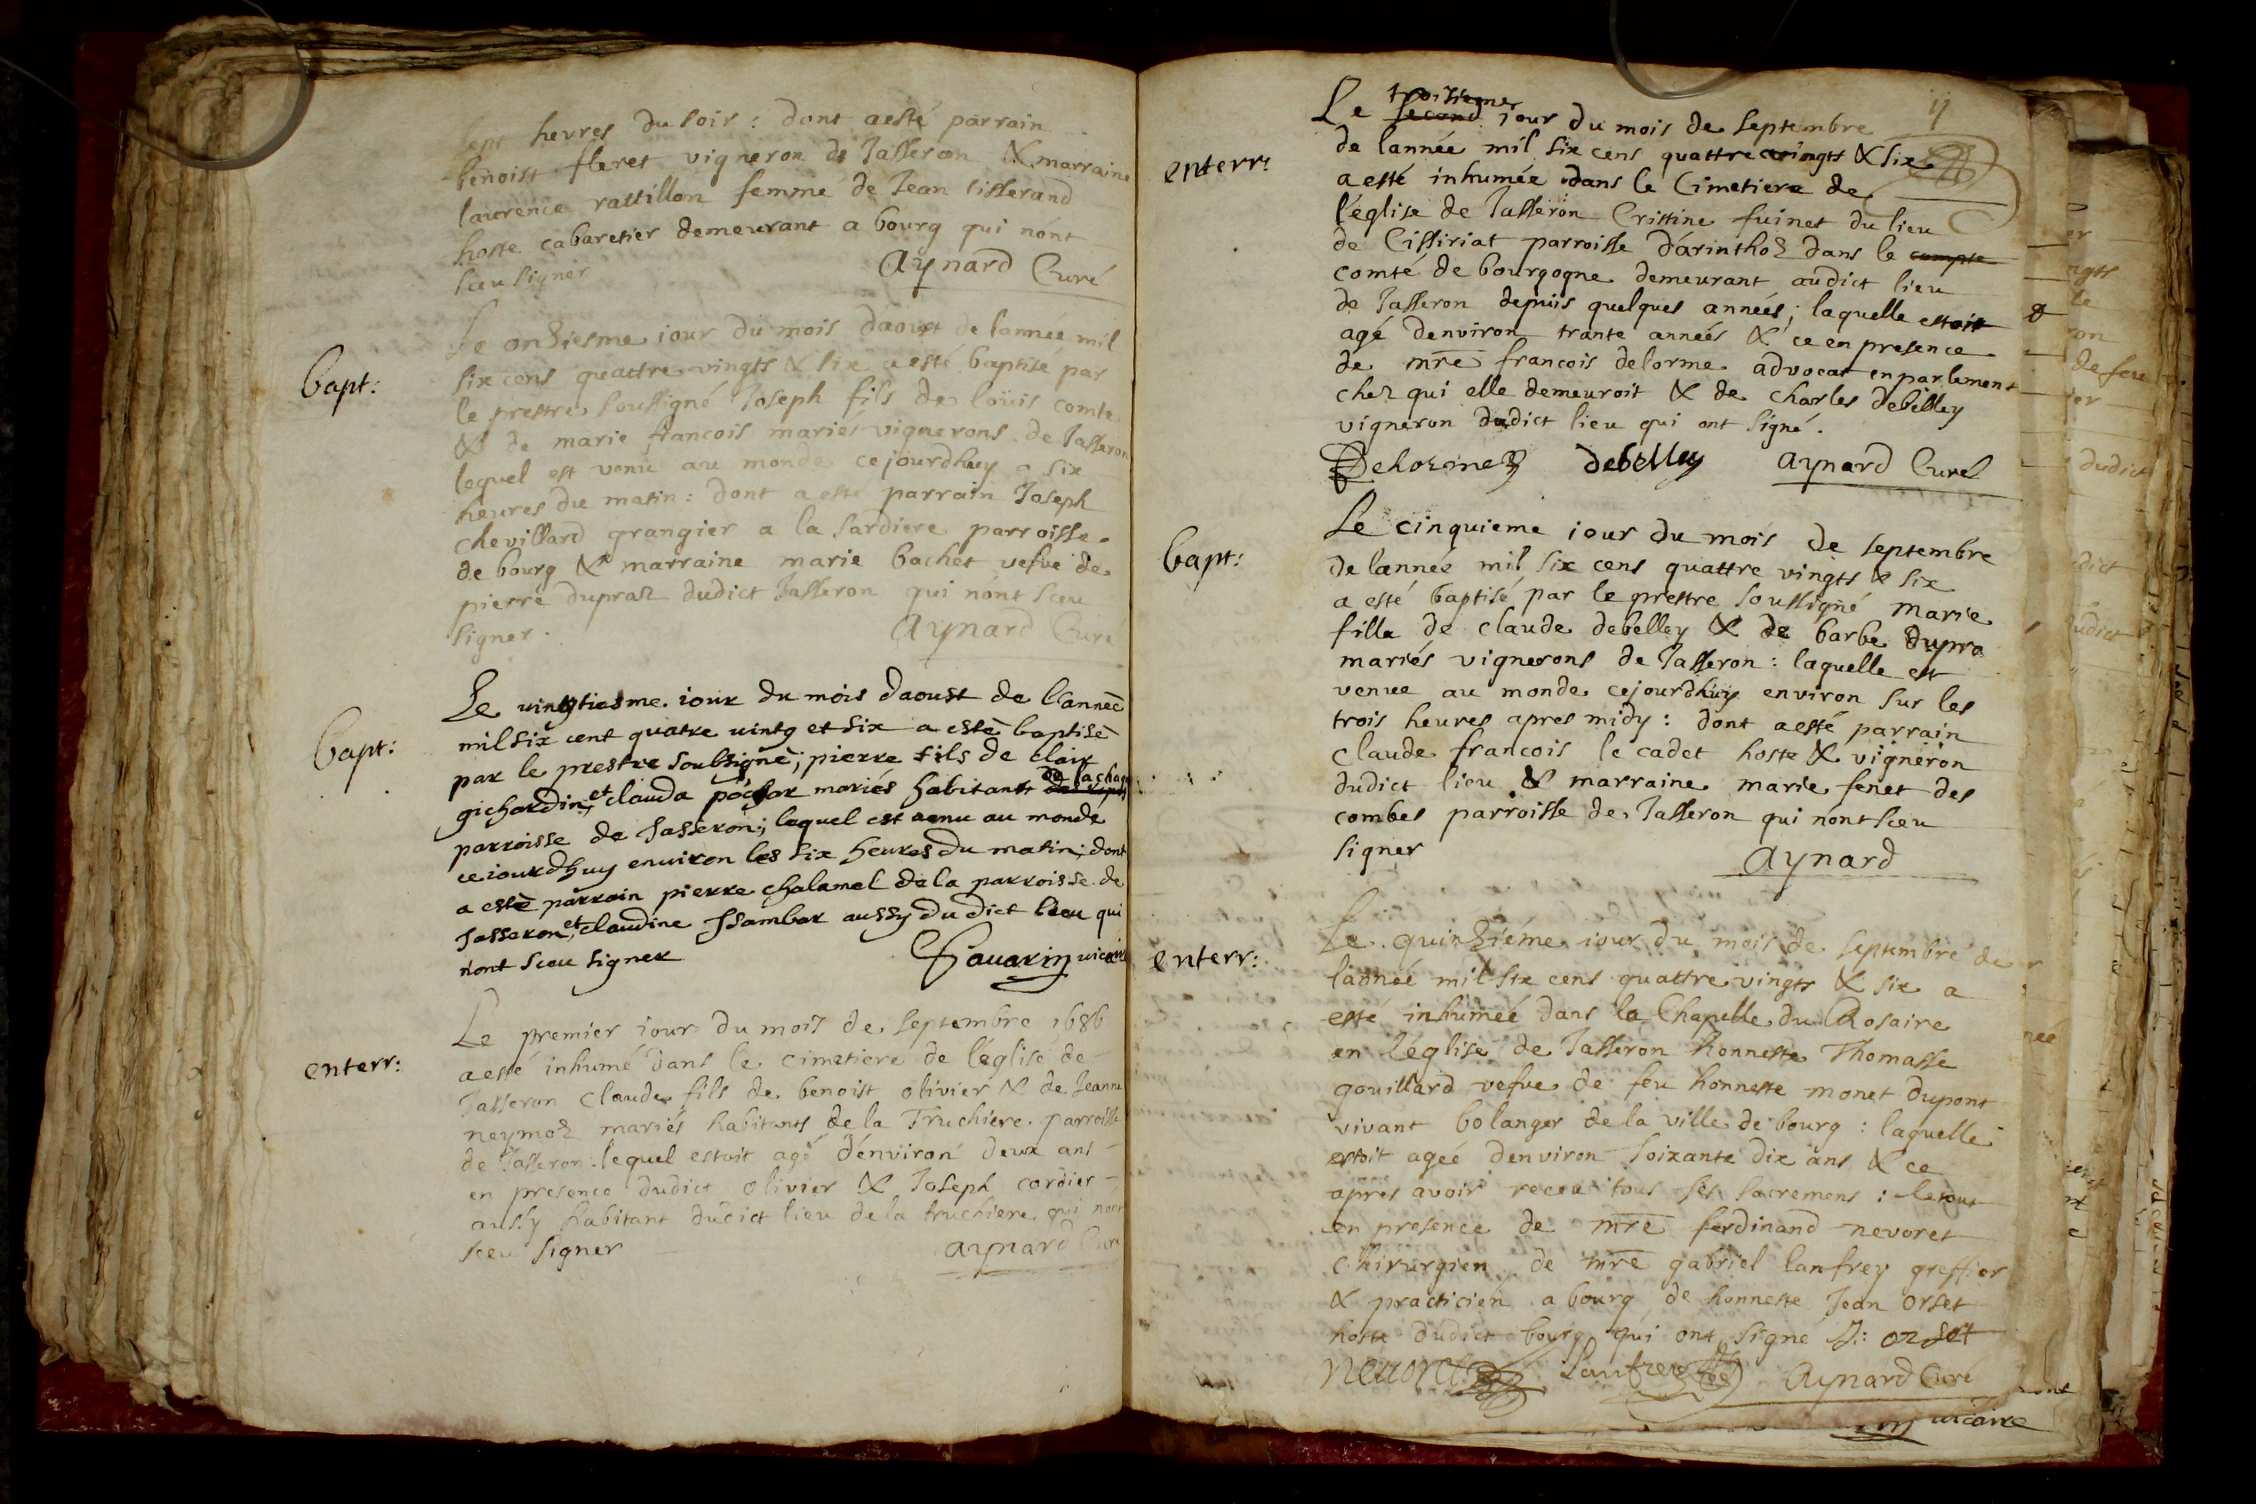 sept hevres du soir : dont aesté parrain
benoist floret vigneron de Jasseron & marraine
laurence rattillon femme de Jean tisserand
hoste cabaretier demeurant a bourg qui nónt
sceu signer Aynard Curé
bapt:
Le onziesme iour du mois daoust de lannee mil
six cens quattre vingts & six a esté baptisé par
le prestre soussigné Joseph fils de loüis comte
& de marie francois mariés vignerons de Jasseron
lequel est venu au monde cejourdhuy a six
heures du matin : dont a esté parrain Joseph
chevillard grangier a la sardiere parroisse
de bourg & marraine marie bachet vefve de
pierre dupraz dudict Jasseron qui nónt sceu
signer . Aynard Curé
bapt:
Le vingtiesme iour du mois daoust de Lanneè
mil six cent quatre uintg et six a estè baptisè
par le prestre soubsignè, pierre fils de clair
gichardin, et clauda pochar mariés habitant de la chap
parroisse de Jasseron; lequel est venu au monde
ce iourdhuy enuiron les six heures du matin; dont
a estè parrain pierre chalamel de la parroisse de
Jasseron, et claudine Jsambar aussy du dict lieu qui
nont sceu signer Fauarin uicaire
enterr:
Le premier iour du mois de septembre 1686
aesté inhumé dans le cimetiere de léglise de
Jasseron claude fils de benoist olivier & de Jeanne
neymoz mariés habitants de la Truchiere parroisse
de Jasseron lequel estoit agé dénviron deux ans
en presence dudict olivier & Joseph cordier
aussy habitant dudict lieu de la truchiere qui nónt
sceu signer aynard Curé
ij
enterr:
troisieme
Le second iour du mois de septembre
de lannée mil six cens quattre vingts & six
a esté inhumée dans le Cimetiere de
léglise de Jasseron Cristine fuinet du lieu
de Cissiriat parroisse dárinthoz dans le compte
comté de bourgogne demeurant audict lieu
de Jasseron depuis quelques années; laquelle estoit
agé denviron trante années & ce en presence
de mre francois delorme advocat en parlement
chez qui elle demeuroit & de charles debelley
vigneron dudict lieu qui ont signé .
Delorme debelley aynard Curé
bapt:
Le cinquieme iour du mois de septembre
de lannée mil six cens quattre vingts & six
a esté baptisé par le prestre soussigné marie
fille de claude debelley & de barbe dupra
mariés vignerons de Jasseron : laquelle est
venue au monde cejourdhuy environ sur les
trois heures apres midy : dont aesté parrain
claude francois le cadet hoste & vigneron
dudict lieu & marraine marie fenet des
combes parroisse de Jasseron qui nónt sceu
signer aynard
enterr:
Le quinziéme iour du mois de septembre de
lannéé mil six cens quattre vingts & six a
esté inhumée dans la Chapelle du Rosaire
en léglise de Jasseron honneste Thomasse
gouillard vefve de feu honneste monet dupont
vivant bolanger de la ville de bourg : laquelle
estoit ageé denviron soixante dix ans & ce
apres avoir receu tous ses sacremens : le tout
en presence de mre ferdinand nevoret
chirurgien de mre gabriel lanfrey greffier
& practicien a bourg de honneste Jean orset
hoste dudict bourg qui ont signé J: orset
neuoret Lanfrey Aynard Curé
uicaire